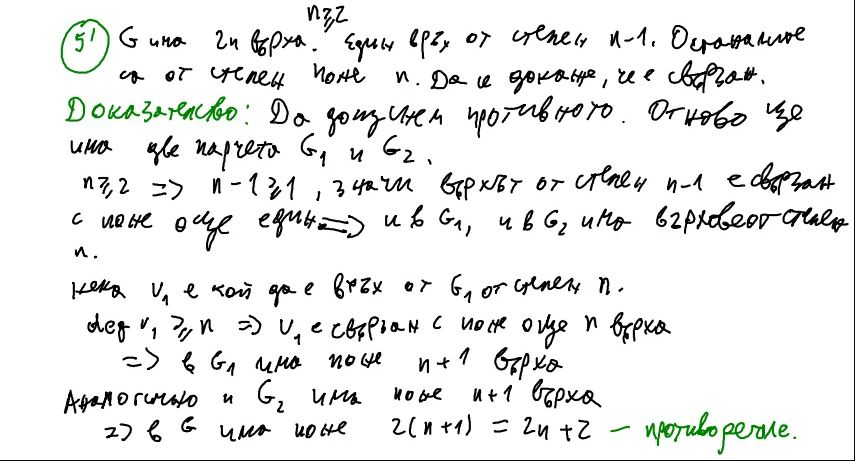 n⩾2
5' G има 2n върха. Един връх от степен n-1. Останалите
са от степен поне n. Да се докаже, че е свързан.
Доказателство: Да допуснем противното. Отново ще
има две парчета G₁ и G₂.
n⩾2 => n-1⩾1, значи върхът от степен n-1 е свързан
с поне още един => и в G₁, и в G₂ има върхове от степен
n.
Нека v₁ е кой да е връх от G₁ от степен n.
deg v₁ ⩾ n => v₁ е свързан с поне още n върха
=> в G₁ има поне n+1 върха
Аналогично и G₂ има поне n+1 върха
=> в G има поне 2(n+1) = 2n+2 – противоречие.